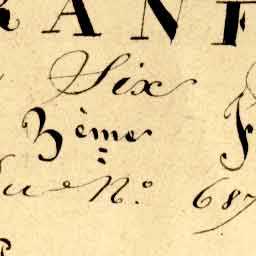 RANF
Six
3ème F
Rue N.° 687